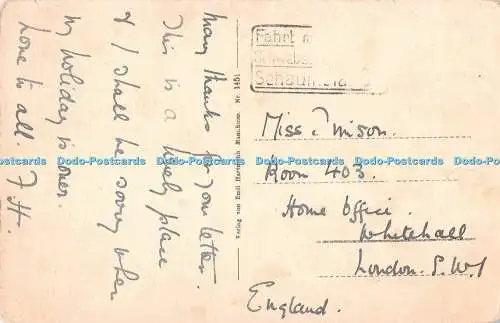 Many thanks for your letter.
This is a lovely place
& I shall be sorry when
my holiday is over.
Love to all. F H.
Fahrt m
Schau
Verlag von Emil München. Nr. 1451
Miss
Room 403.
Home Office.
Whitehall
London. S.W.1
England.
Dodo-Postcards Dodo-Postcards Dodo-Postcards Dodo-Postcards Dodo-Postcards Dodo-Postcards